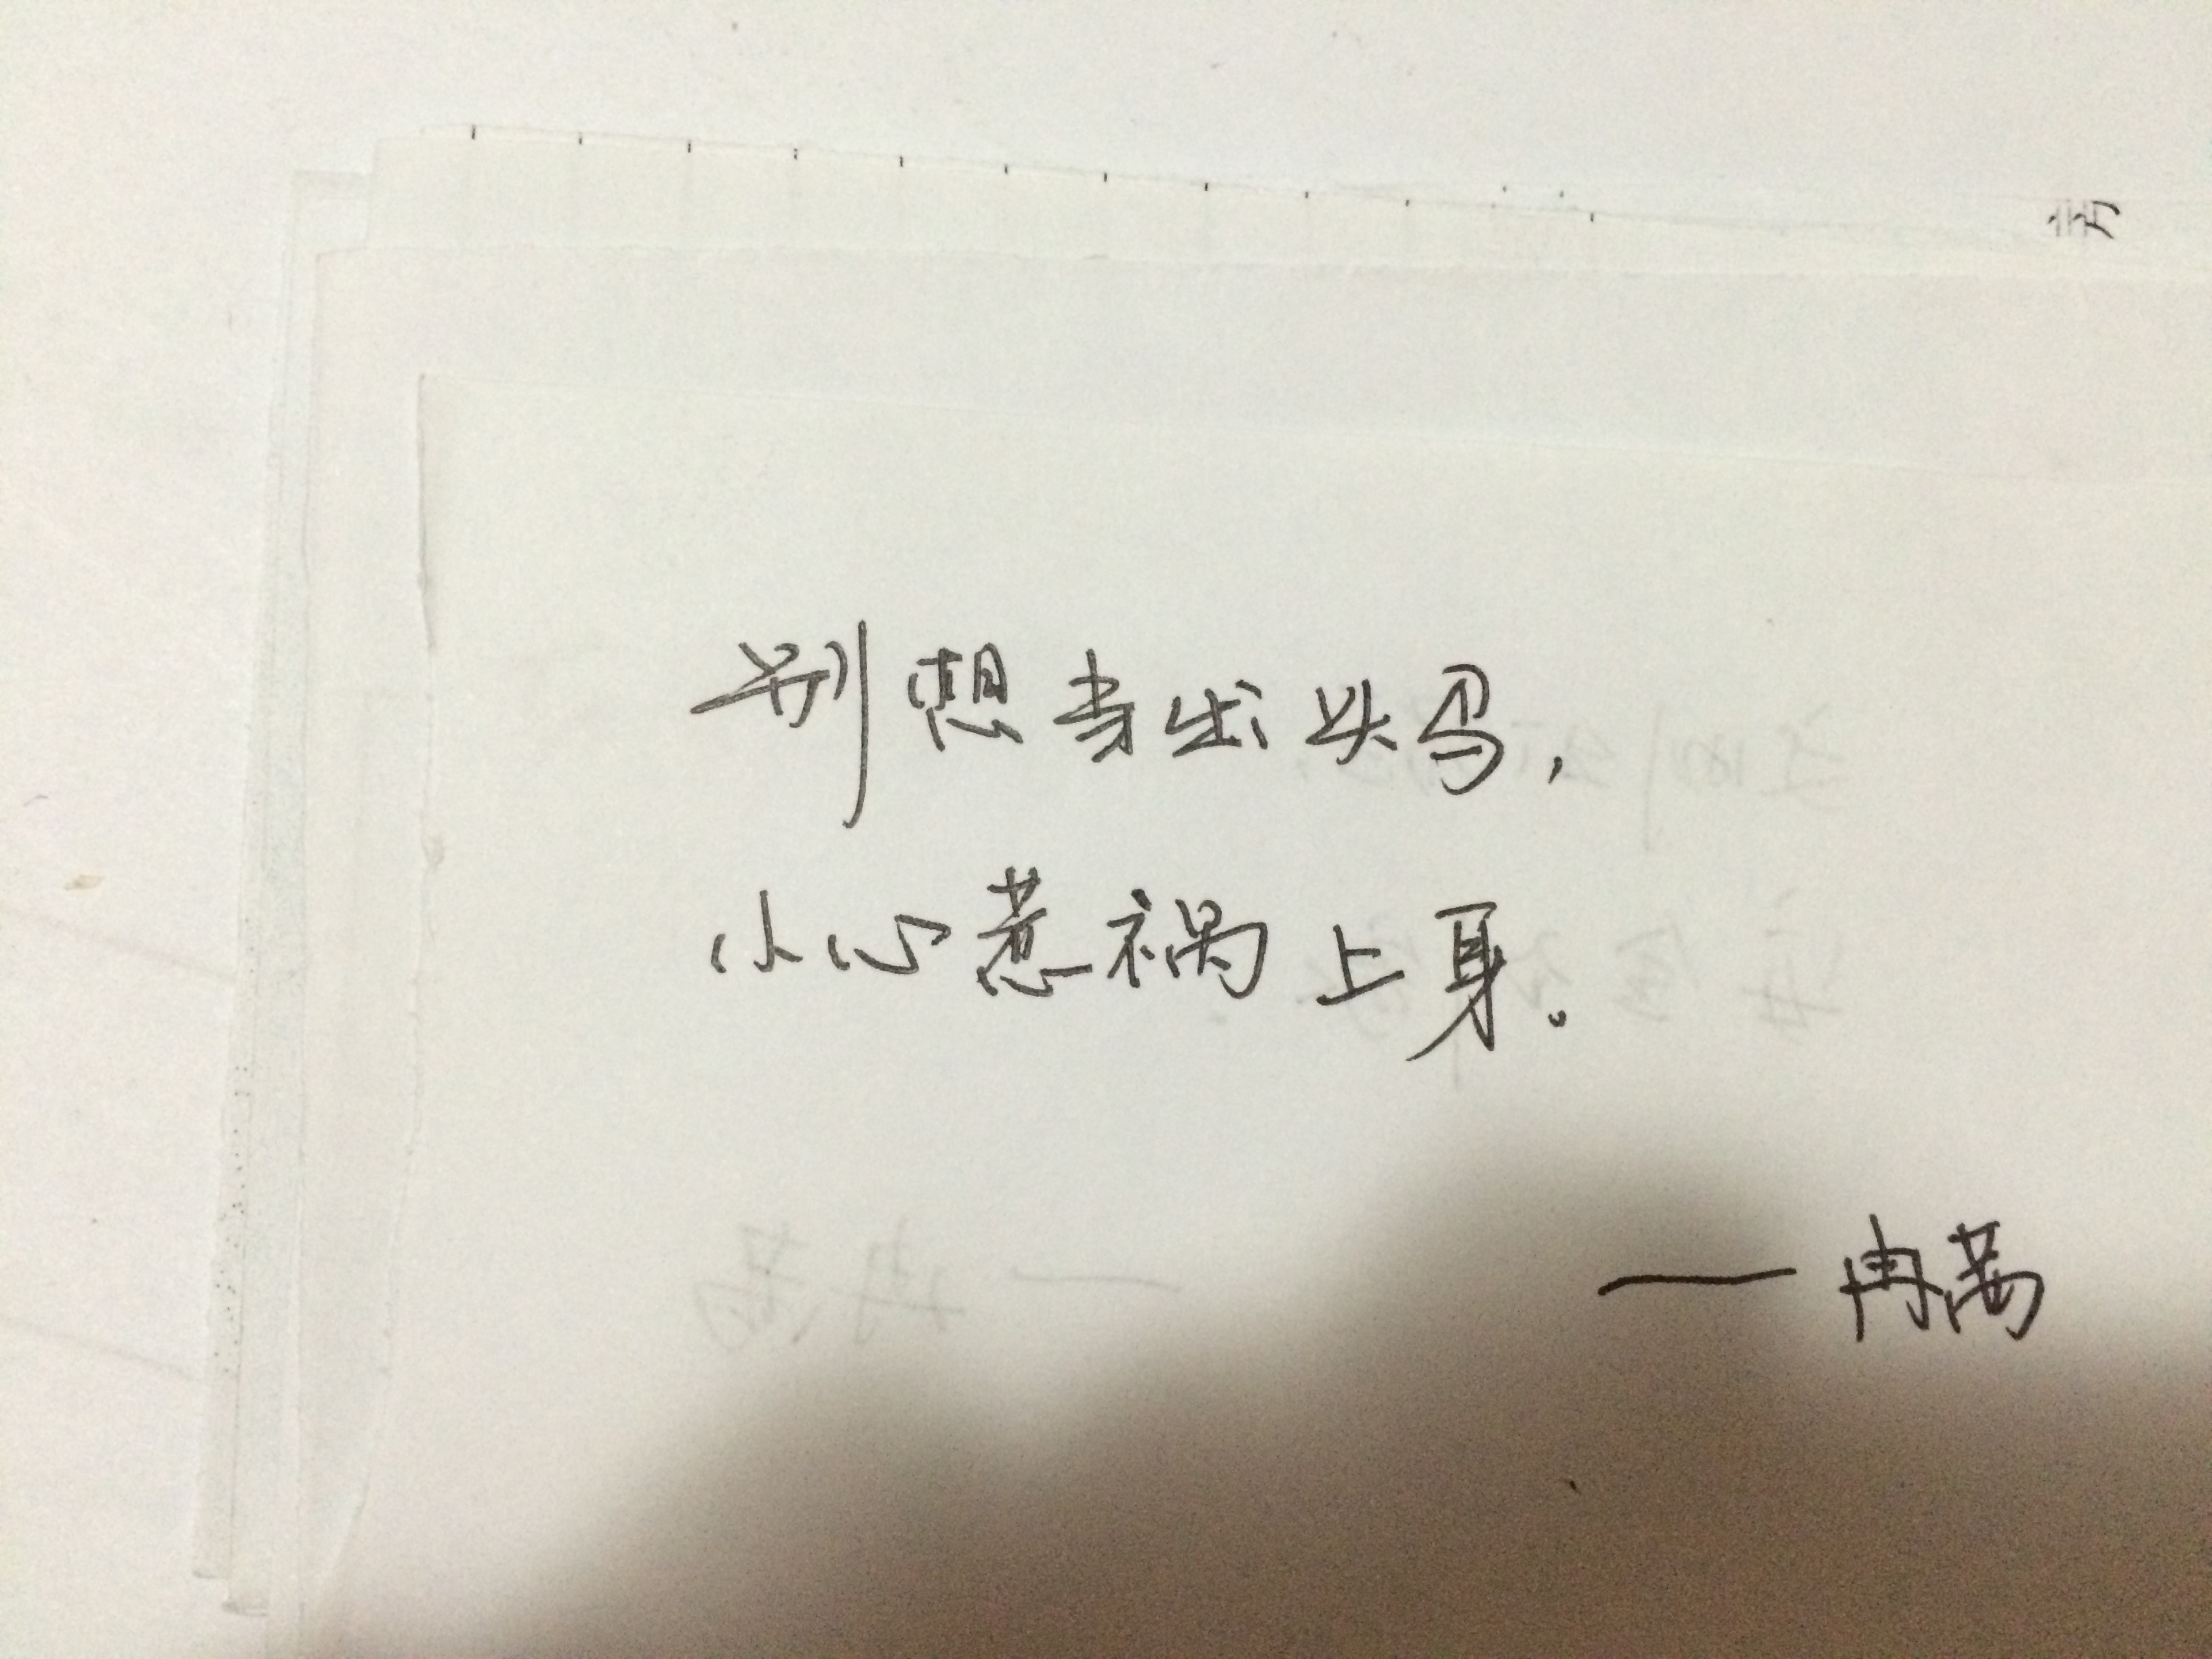 别想当出头鸟,
小心惹祸上身。
—冉茜